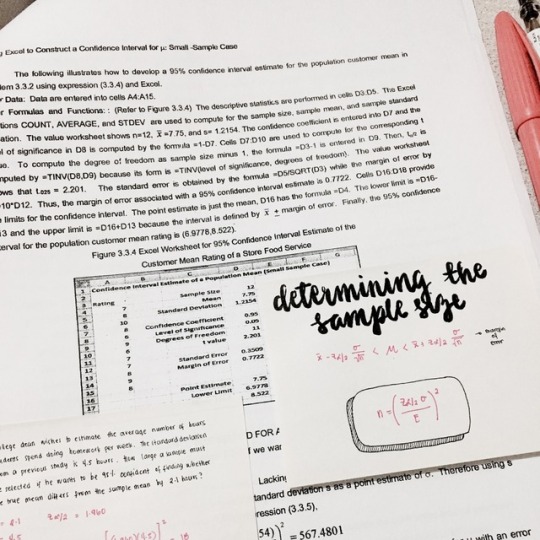 g Excel to Construct a Confidence Interval for μ: Small -Sample Case
The following illustrates how to develop a 95% confidence interval estimate for the population customer mean in
lem 3.3.2 using expression (3.3.4) and Excel.
r Data: Data are entered into cells A4:A15.
r Formulas and Functions: : (Refer to Figure 3.3.4) The descriptive statistics are performed in cells D3:D5. The Excel
tions COUNT, AVERAGE, and STDEV are used to compute for the sample size, sample mean, and sample standard
ation. The value worksheet shows n=12, x̄ =7.75, and s= 1.2154. The confidence coefficient is entered into D7 and the
l of significance in D8 is computed by the formula =1-D7. Cells D7:D10 are used to compute for the corresponding t
ue. To compute the degree of freedom as sample size minus 1, the formula =D3-1 is entered in D9. Then, tα/2 is
mputed by =TINV(D8,D9) because its form is =TINV(level of significance, degrees of freedom). The value worksheet
ows that t.025 = 2.201. The standard error is obtained by the formula =D5/SQRT(D3) while the margin of error by
10*D12. Thus, the margin of error associated with a 95% confidence interval estimate is 0.7722. Cells D16:D18 provide
e limits for the confidence interval. The point estimate is just the mean, D16 has the formula =D4. The lower limit is =D16-
13 and the upper limit is =D16+D13 because the interval is defined by x̄ ± margin of error. Finally, the 95% confidence
terval for the population customer mean rating is (6.9778,8.522).
Figure 3.3.4 Excel Worksheet for 95% Confidence Interval Estimate of the
Customer Mean Rating of a Store Food Service
A B C D E F G
1 Confidence Interval Estimate of a Population Mean (Small Sample Case)
2
3 Rating Sample Size 12
4 7 Mean 7.75
5 8 Standard Deviation 1.2154
6 10
7 Confidence Coefficient 0.95
8 Level of Significance 0.05
9 Degrees of Freedom 11
10 7 t value 2.201
11
12 Standard Error 0.3509
13 Margin of Error 0.7722
14
15 Point Estimate 7.75
16 Lower Limit 6.9778
17 8.522
determining the
sample size
x̄ - zα/2 σ/√n < M < x̄ + zα/2 σ/√n → margin of error
n = (zα/2 σ / E)²
llege dean wishes to estimate the average number of hours
udents spend doing homework per week. The standard deviation
om a previous study is 4.5 hours. How large a sample must
selected if he wants to be 95% confident of finding whether
e true mean differs from the sample mean by 2.1 hours?
= 2.1 zα/2 = 1.960
= 4.5
D FOR
f we wa
Lackin
tandard deviation s as a point estimate of σ. Therefore using s
ression (3.3.5),
54))² = 567.4801
with an error